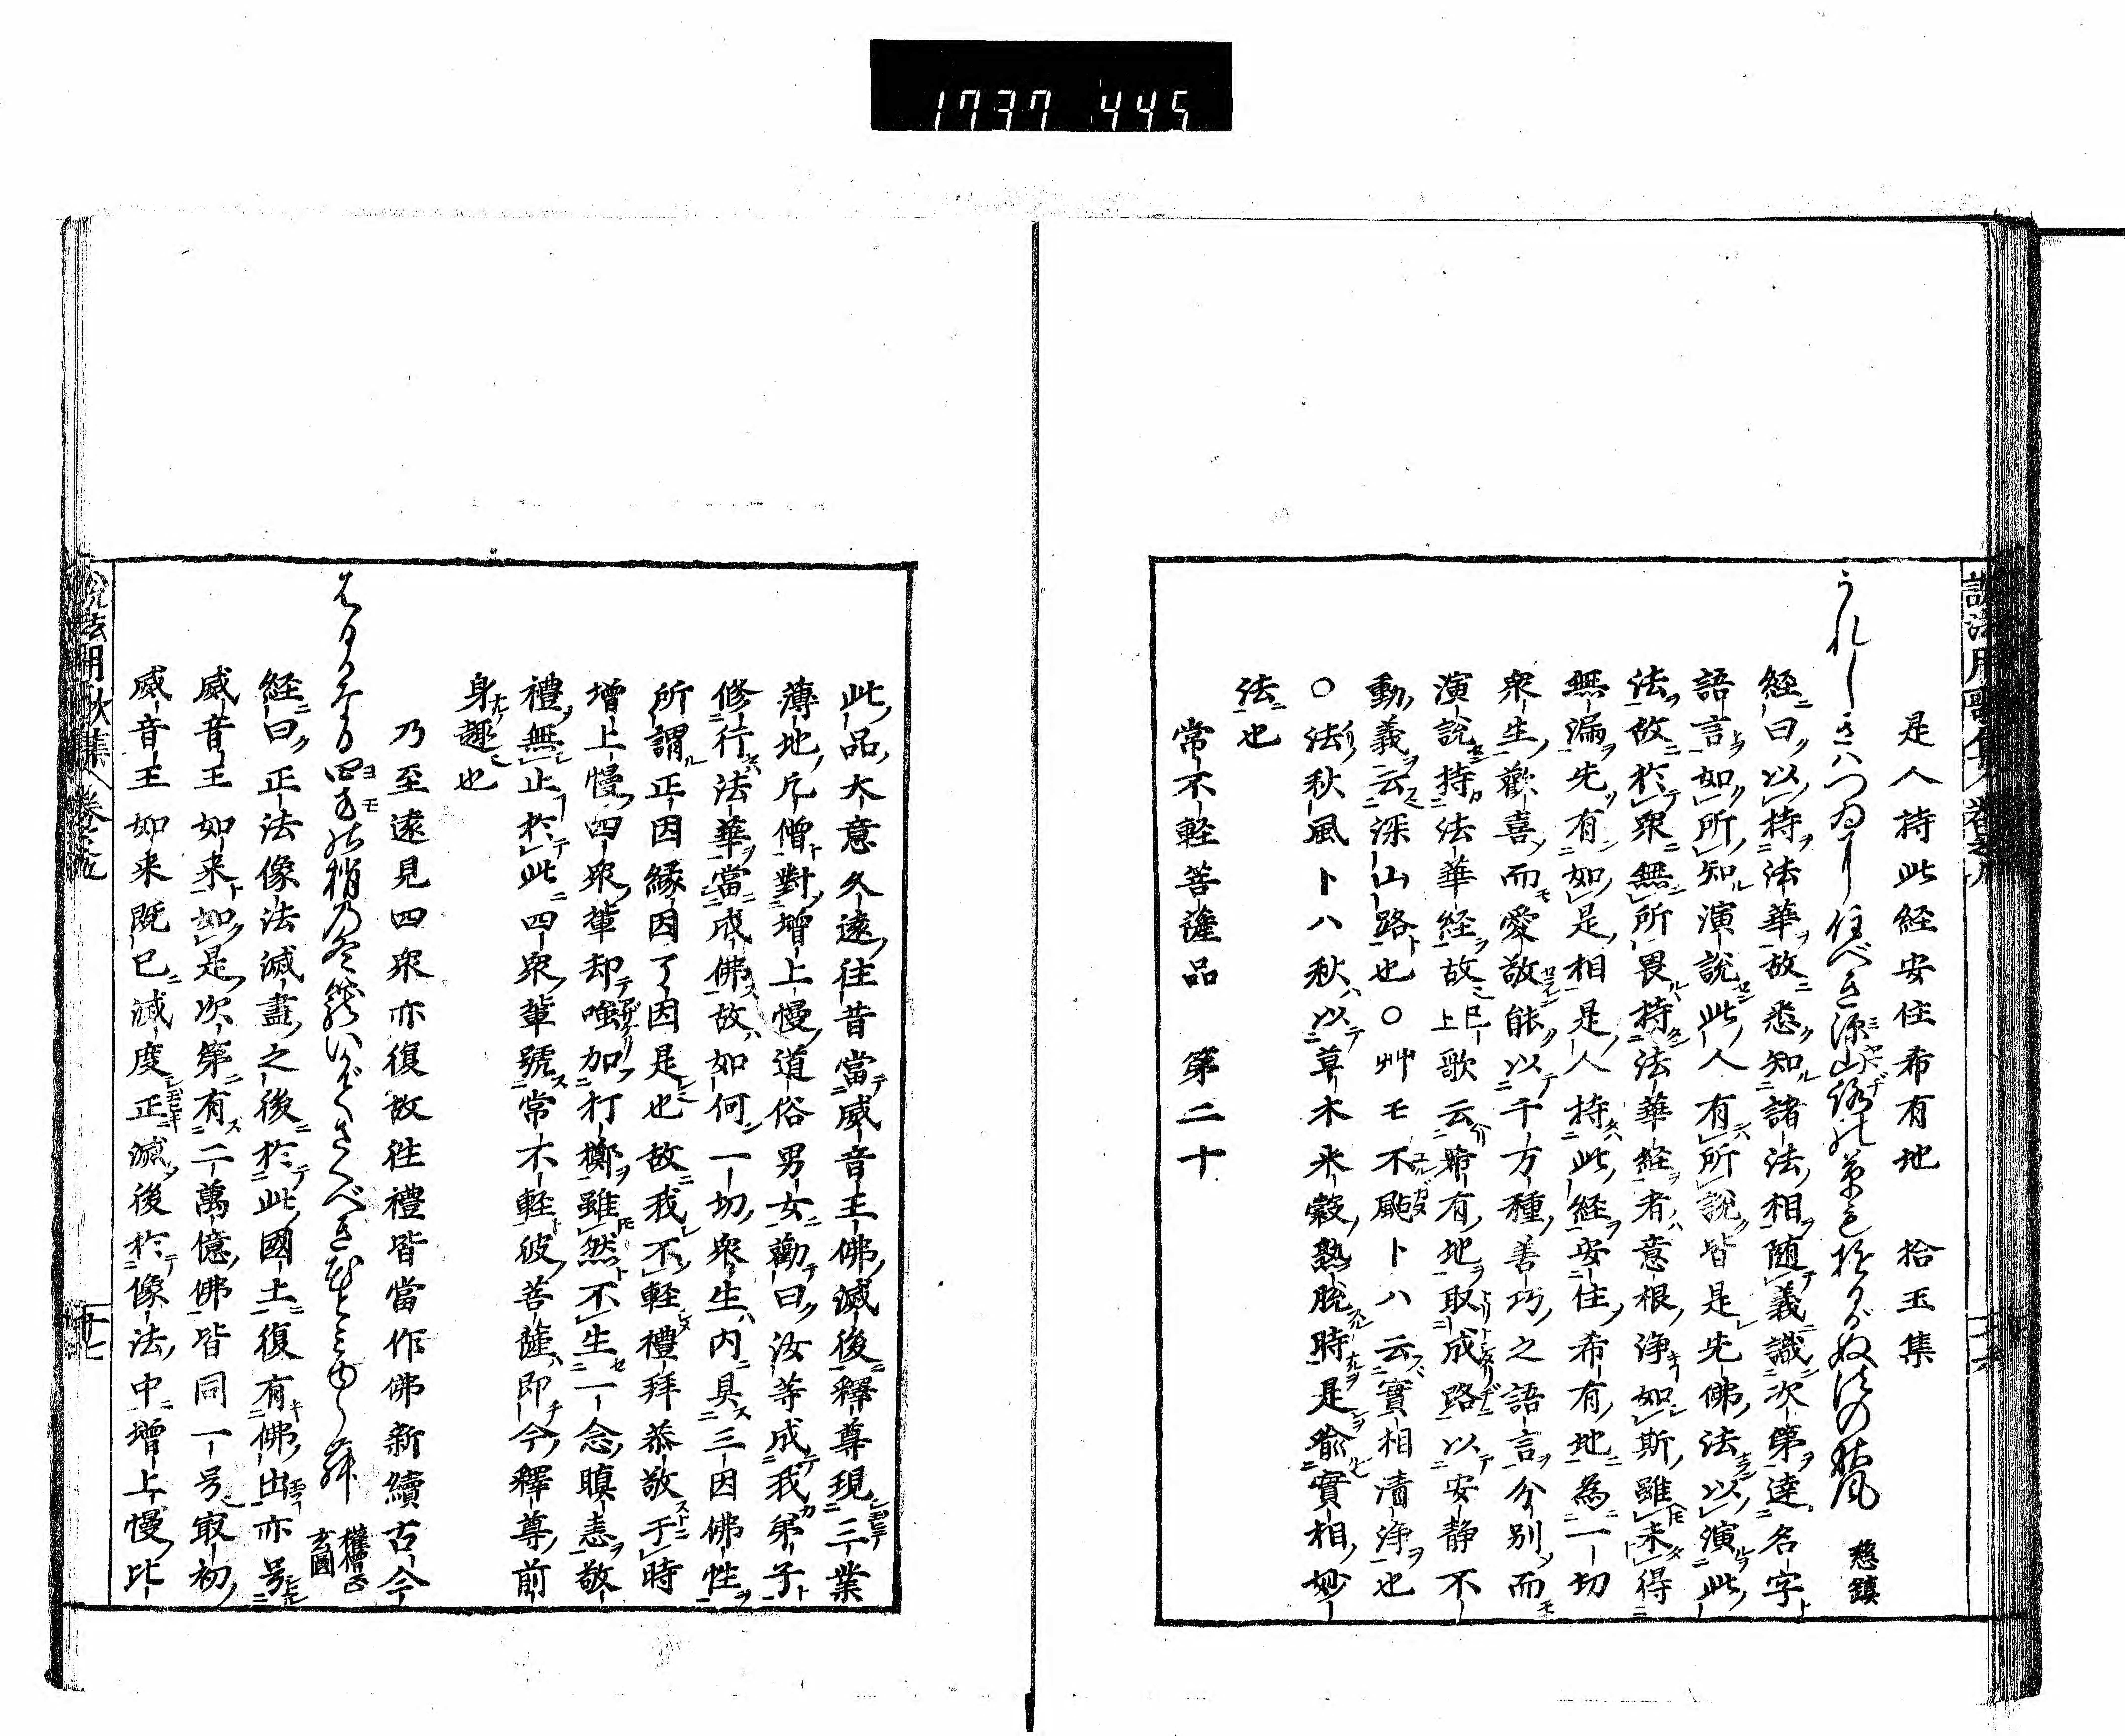 1737 445
是人持此経安住希有地　拾玉集
うれしきハつゐに住べき深山路の草も揺るがぬ法の秋風　慈鎮
経曰以持法華故悉知諸法相随義識次第達名字
語言如所知演説此人有所説皆是先佛法以演此
法故於衆無所畏持法華経者意根浄如斯雖未得
無漏先有如是相是人持此経安住希有地為一切
衆生歡喜而愛敬能以千方種善巧之語言分別而
演説持法華経故已上歌云希有地取成路以安静不
動義云深山路也〇艸モ不颭トハ云實相清浄也
〇法秋風トハ秋以草木米穀熟脱時是喩實相妙
法也
常不軽菩薩品　第二十
此品大意久遠往昔當威音王佛滅後釋尊現三業
薄地凡僧對増上慢道俗男女勸曰汝等成我弟子
修行法華當成佛故如何一切衆生内具三因佛性
所謂正因縁因了因是也故我不軽禮拜恭敬于時
増上慢四衆輩却嗤加打擲雖然不生一念瞋恚敬
禮無止於此四衆輩號常不軽彼菩薩即今釋尊前
身趣也
乃至遠見四衆亦復故往禮皆當作佛新續古今
四方の梢乃冬籠 権僧正玄圓
経曰正法像法滅盡之後於此國土復有佛出亦号
威音王如来如是次第有二萬億佛皆同一号㝡初
威音王如来既已滅度正滅後於像法中増上慢比
説法用歌集　巻之五